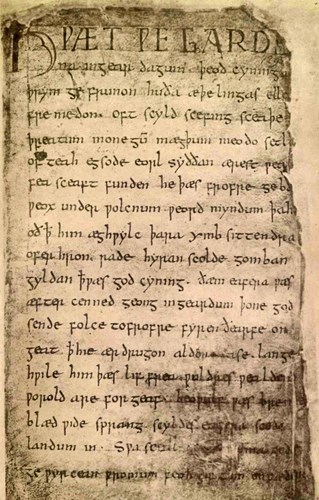 HǷÆT ǷE GARDE
na ingear dagum. þeod cyning
þrym ge frunon huða æþelingas elle
fre medon. oft scyld scefing sceaþe
þreatum monegū mægþum meodo setl
of teah egsode eorl syððan ærest ƿear
fea sceaft funden he þæs frofre geb
ƿeox under ƿolcnum ƿeorð myndum þah
oð ꝥ him æghƿylc þara ymb sittendra
ofer hron rade hyran scolde gomban
gyldan ꝥ ƿæs god cyning. ðæm eafera ƿæs
æfter cenned geong ingeardum þone god
sende folce tofrofre fyren ðearfe on
geat ꝥ hie ær drugon aldor ase. lange
hƿile him þæs lif frea ƿuldres ƿealdend
ƿorold are for geaf. beoƿulf ƿæs breme
blæd ƿide sprang scyldes eafera scede
landum in. Sƿa sceal guma gode
ge ƿyrcean fromum feoh giftum